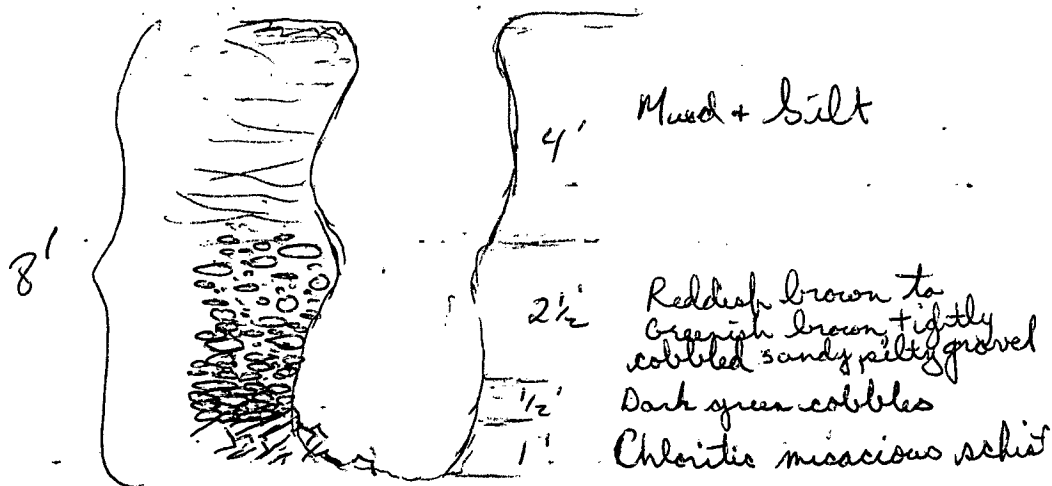 Mud + Silt
4'
8'
2½'
Reddish brown to
Greenish brown, tightly
cobbled sandy, silty gravel
½'
Dark green cobbles
1'
Chloritic micacious schist